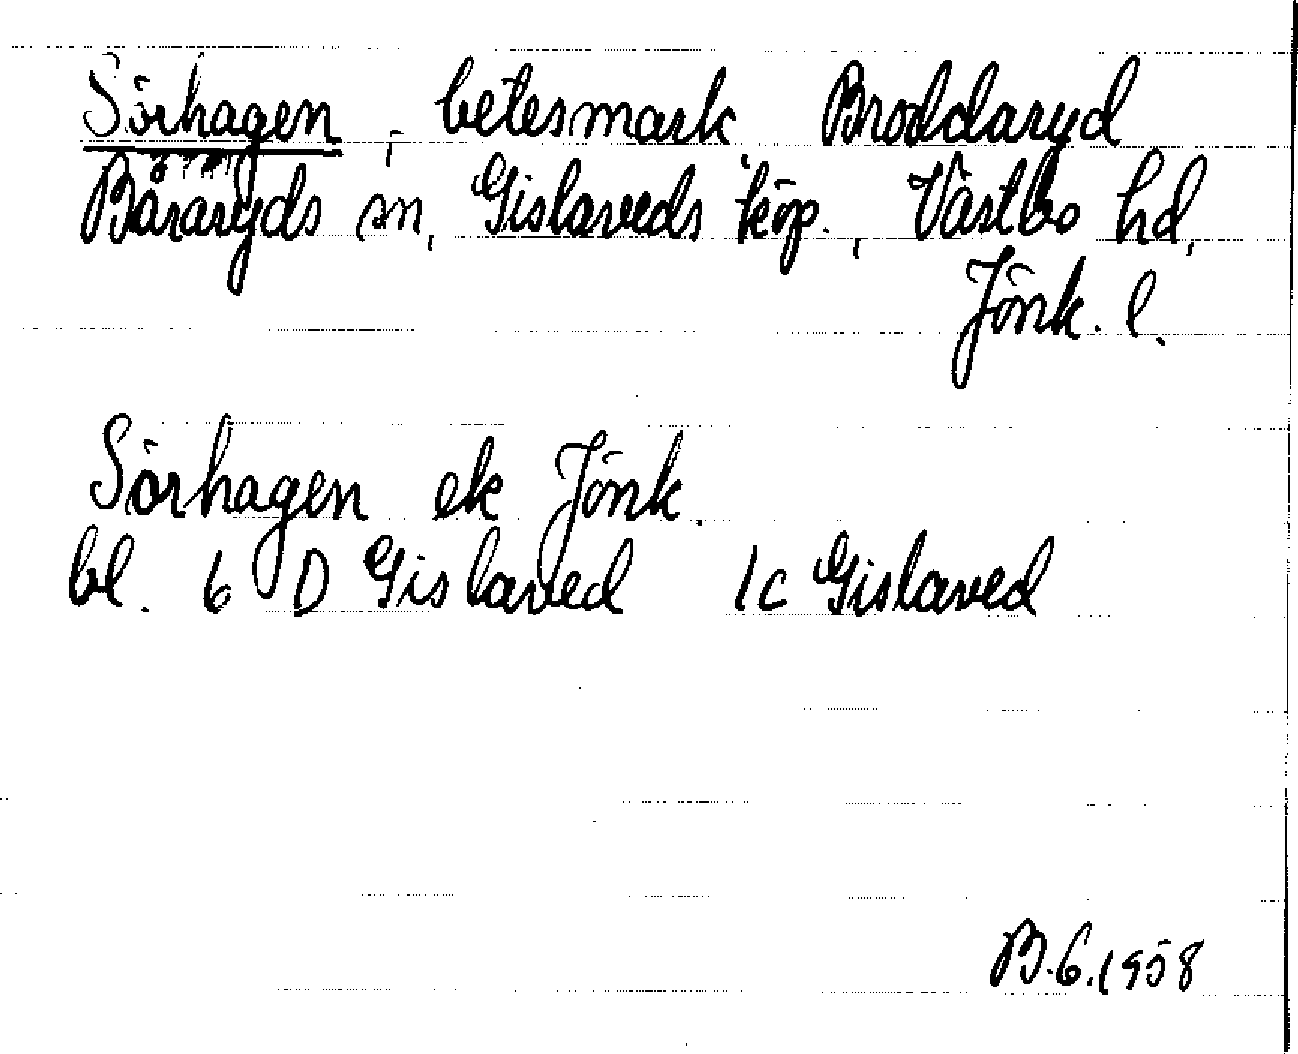 Sörhagen, betesmark Broddaryd
Båraryds sn, Gislaveds köp., Västbo hd,
Jönk. l.
Sörhagen ek Jönk.
bl. 6 D Gislaved 1c Gislaved
B.G.1958